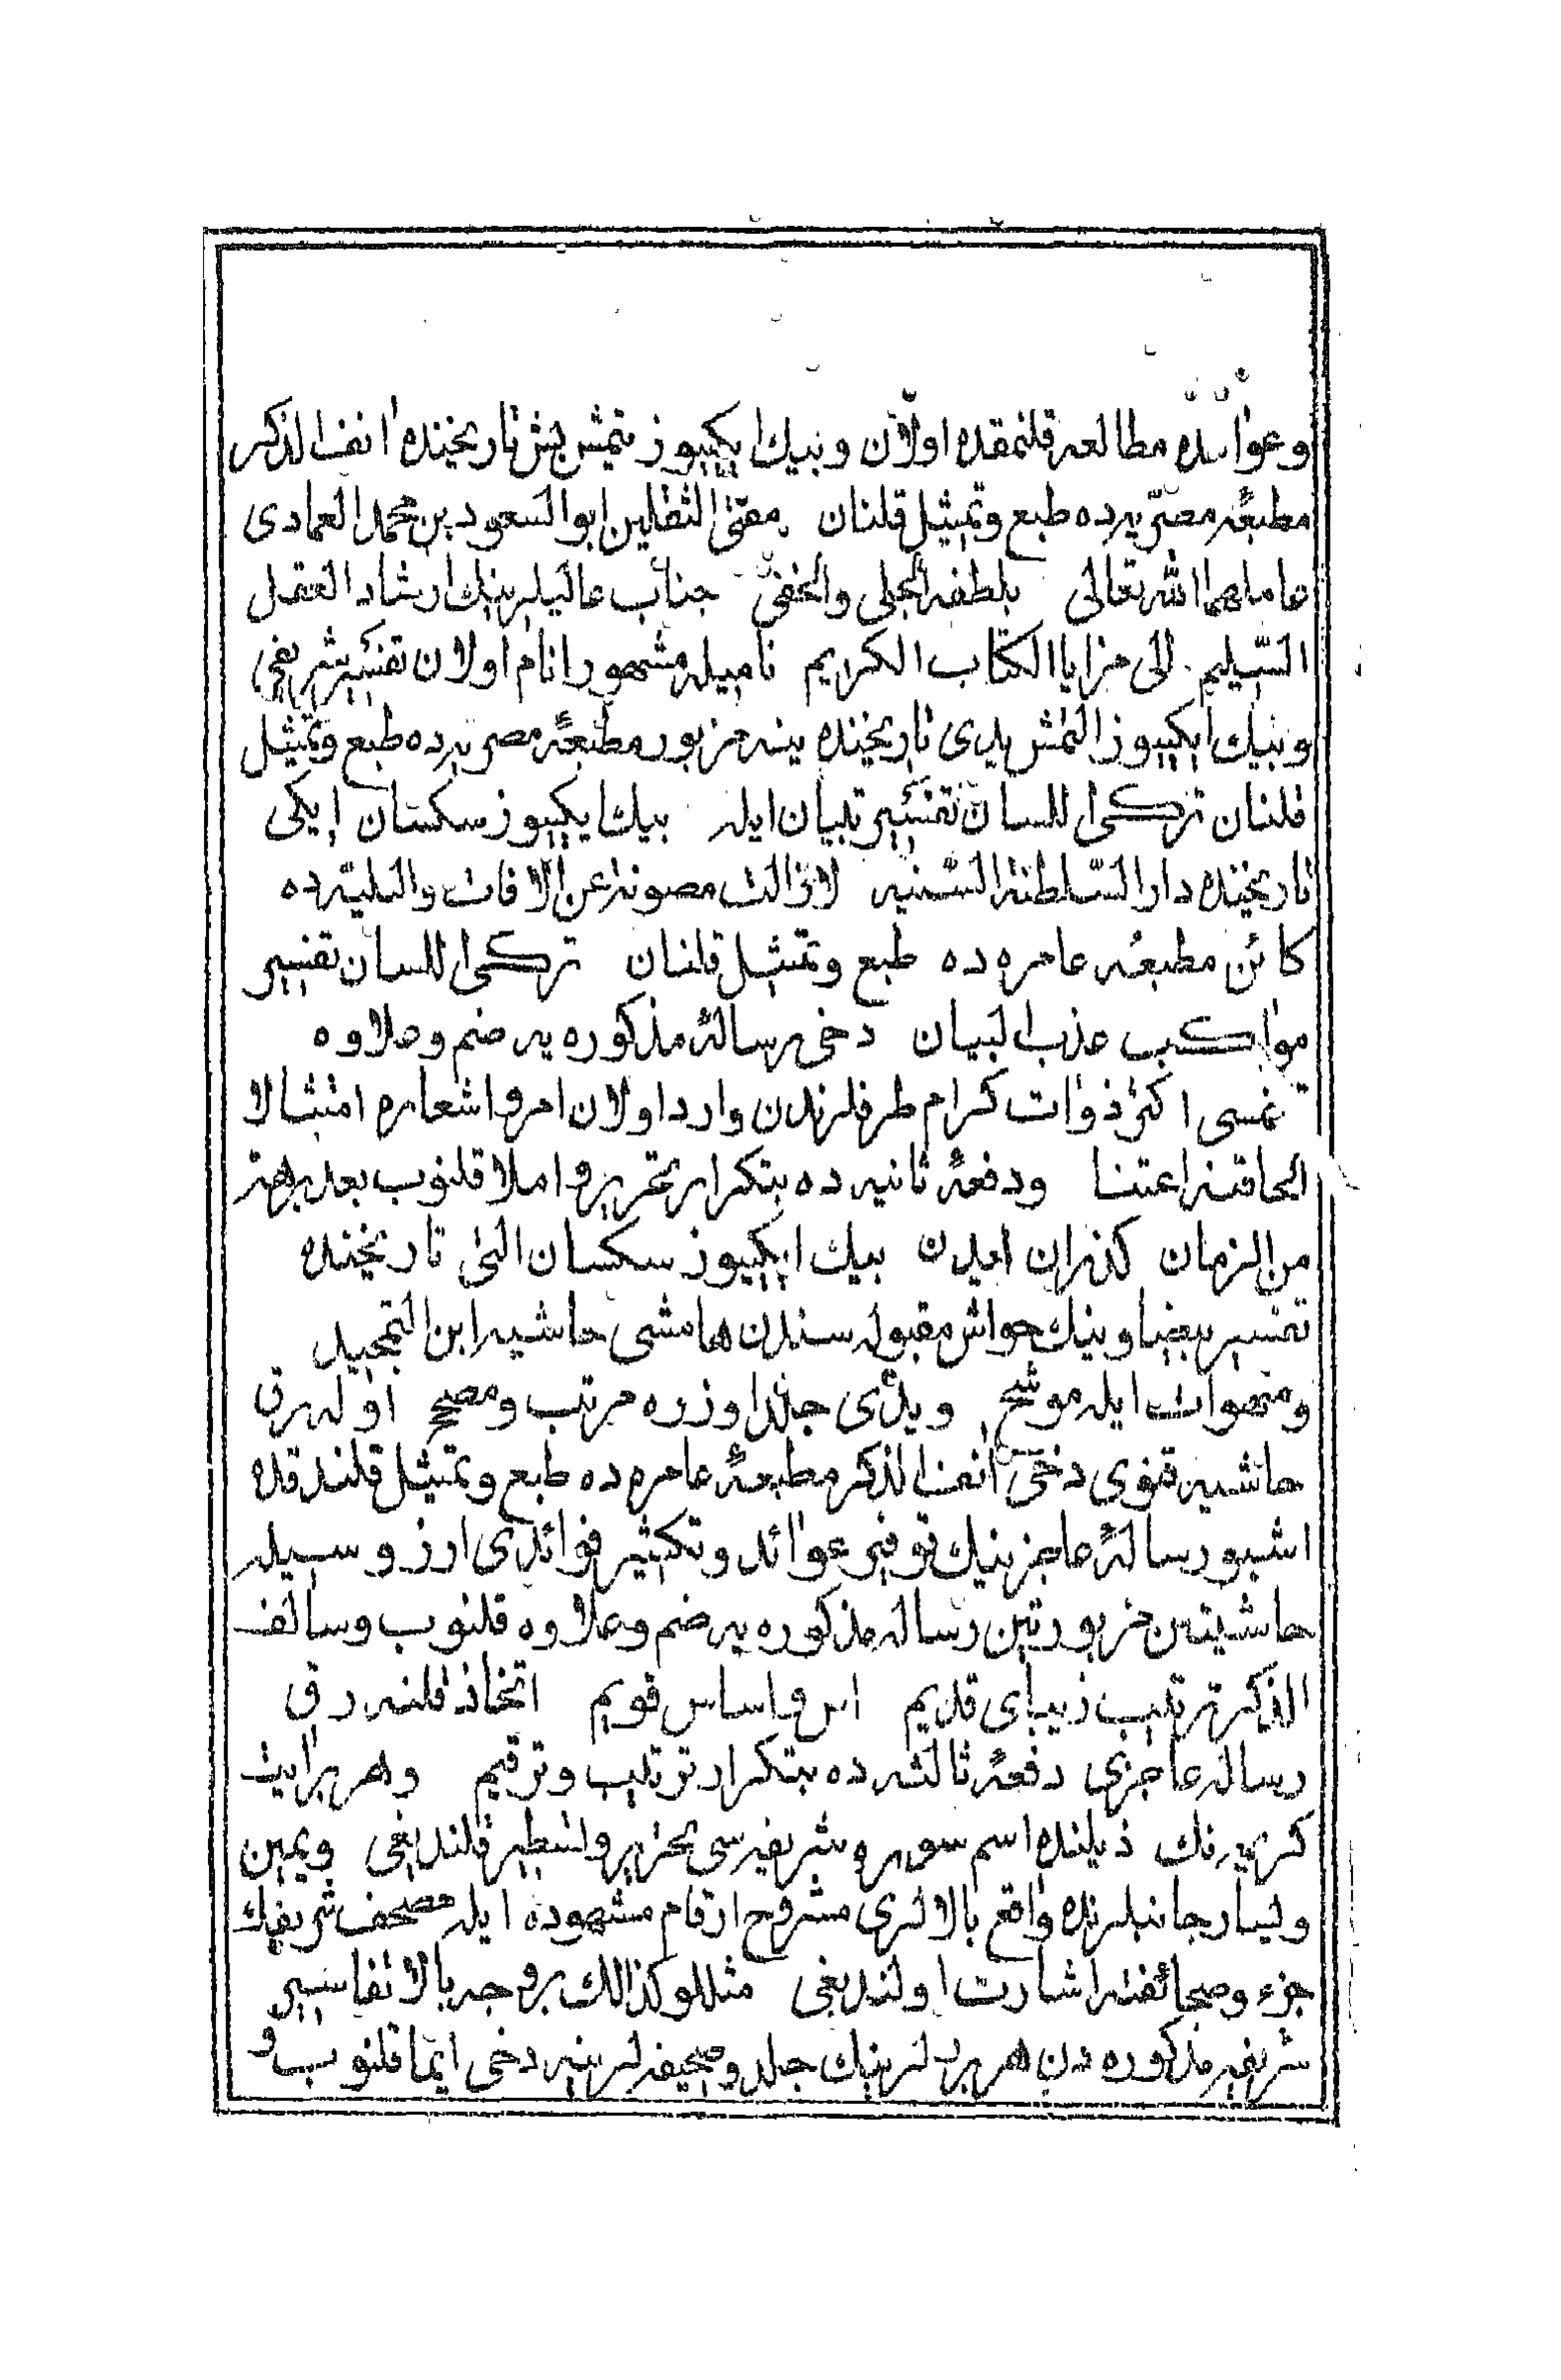 مطالعه قلنمقده اولان و بيك ايكيوز يتمش بش تاريخنده انف الذكر
مطبعۀ مصريه ده طبع و تمثيل قلنان مفتئ الثقلين ابو السعود بن محمد العمادى
عاملهما الله تعالى بلطفه الجلى والخفى جناب عاليلرينك ارشاد العقل
السليم الى مزايا الكتاب الكريم ناميله مشهور انام اولان تفسير شريفى
و بيك ايكيوز التمش يدى تاريخنده ينه مزبور مطبعۀ مصريه ده طبع و تمثيل
قلنان تركى اللسان تفسير تبيان ايله بيك ايكيوز سكسان ايكى
تاريخنده دار السلطنة السنيه لازالت مصونة عن الافات والبليه ده
كائن مطبعۀ عامره ده طبع و تمثيل قلنان تركى اللسان تفسير
مواكب عذب البيان دخى رسالۀ مذكوره يه ضم و علاوه
قلنمسى اكثر ذوات كرام طرفلرندن وارد اولان امر و اشعاره امتثالا
الحاقنه اعتنا ودفعۀ ثانيه ده بتكرار تحرير و املا قلنوب بعد برهة
من الزمان كذران ايدن بيك ايكيوز سكسان التى تاريخنده
تفسير بيضاوينك حواشى مقبوله سندن هامشى حاشيه ابن التمجيد
و منهوات ايله موشح و يدى جلد اوزره مرتب و مصحح اوله رق
حاشيه قنوى دخى انف الذكر مطبعۀ عامره ده طبع و تمثيل قلندقده
اشبو رسالۀ عاجزينك توفير عوائد و تكثير فوائدى ارزوسيله
حاشيتين مزبورتين رساله مذكوره يه ضم و علاوه قلنوب وسالف
الذكر ترتيب زيباى قديم اس و اساس قويم اتخاذ قلنه رق
رساله عاجزى دفعۀ ثالثه ده بتكرار ترتيب و ترقيم و هر بر ايت
كريمه نك ذيلنده اسم سوره شريفه سى تحرير و تسطير قلنديغى ويمين
ويسار جانبلرنده واقع بالالرى مشروح ارقام مشهوده ايله مصحف شريفك
جزء وصحائفنه اشارت اولنديغى مثللو كذالك بر وجه بالا تفاسير
شريفه مذكوره دن هر برلرينك جلد وصحيفه لرينه دخى ايما قلنوب و